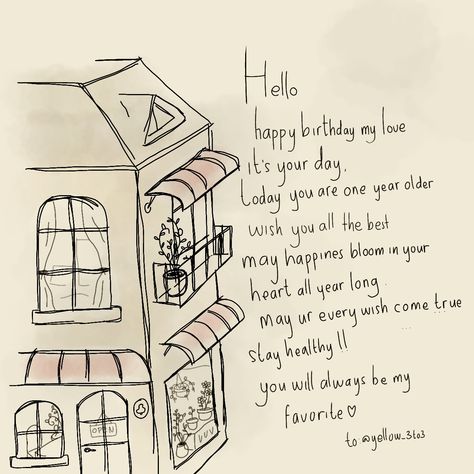 Hello
happy birthday my love
it's your day.
today you are one year older
wish you all the best
may happines bloom in your
heart all year long.
May ur every wish come true
stay healthy !!
you will always be my
favorite♡
to @yellow_3to3
OPEN